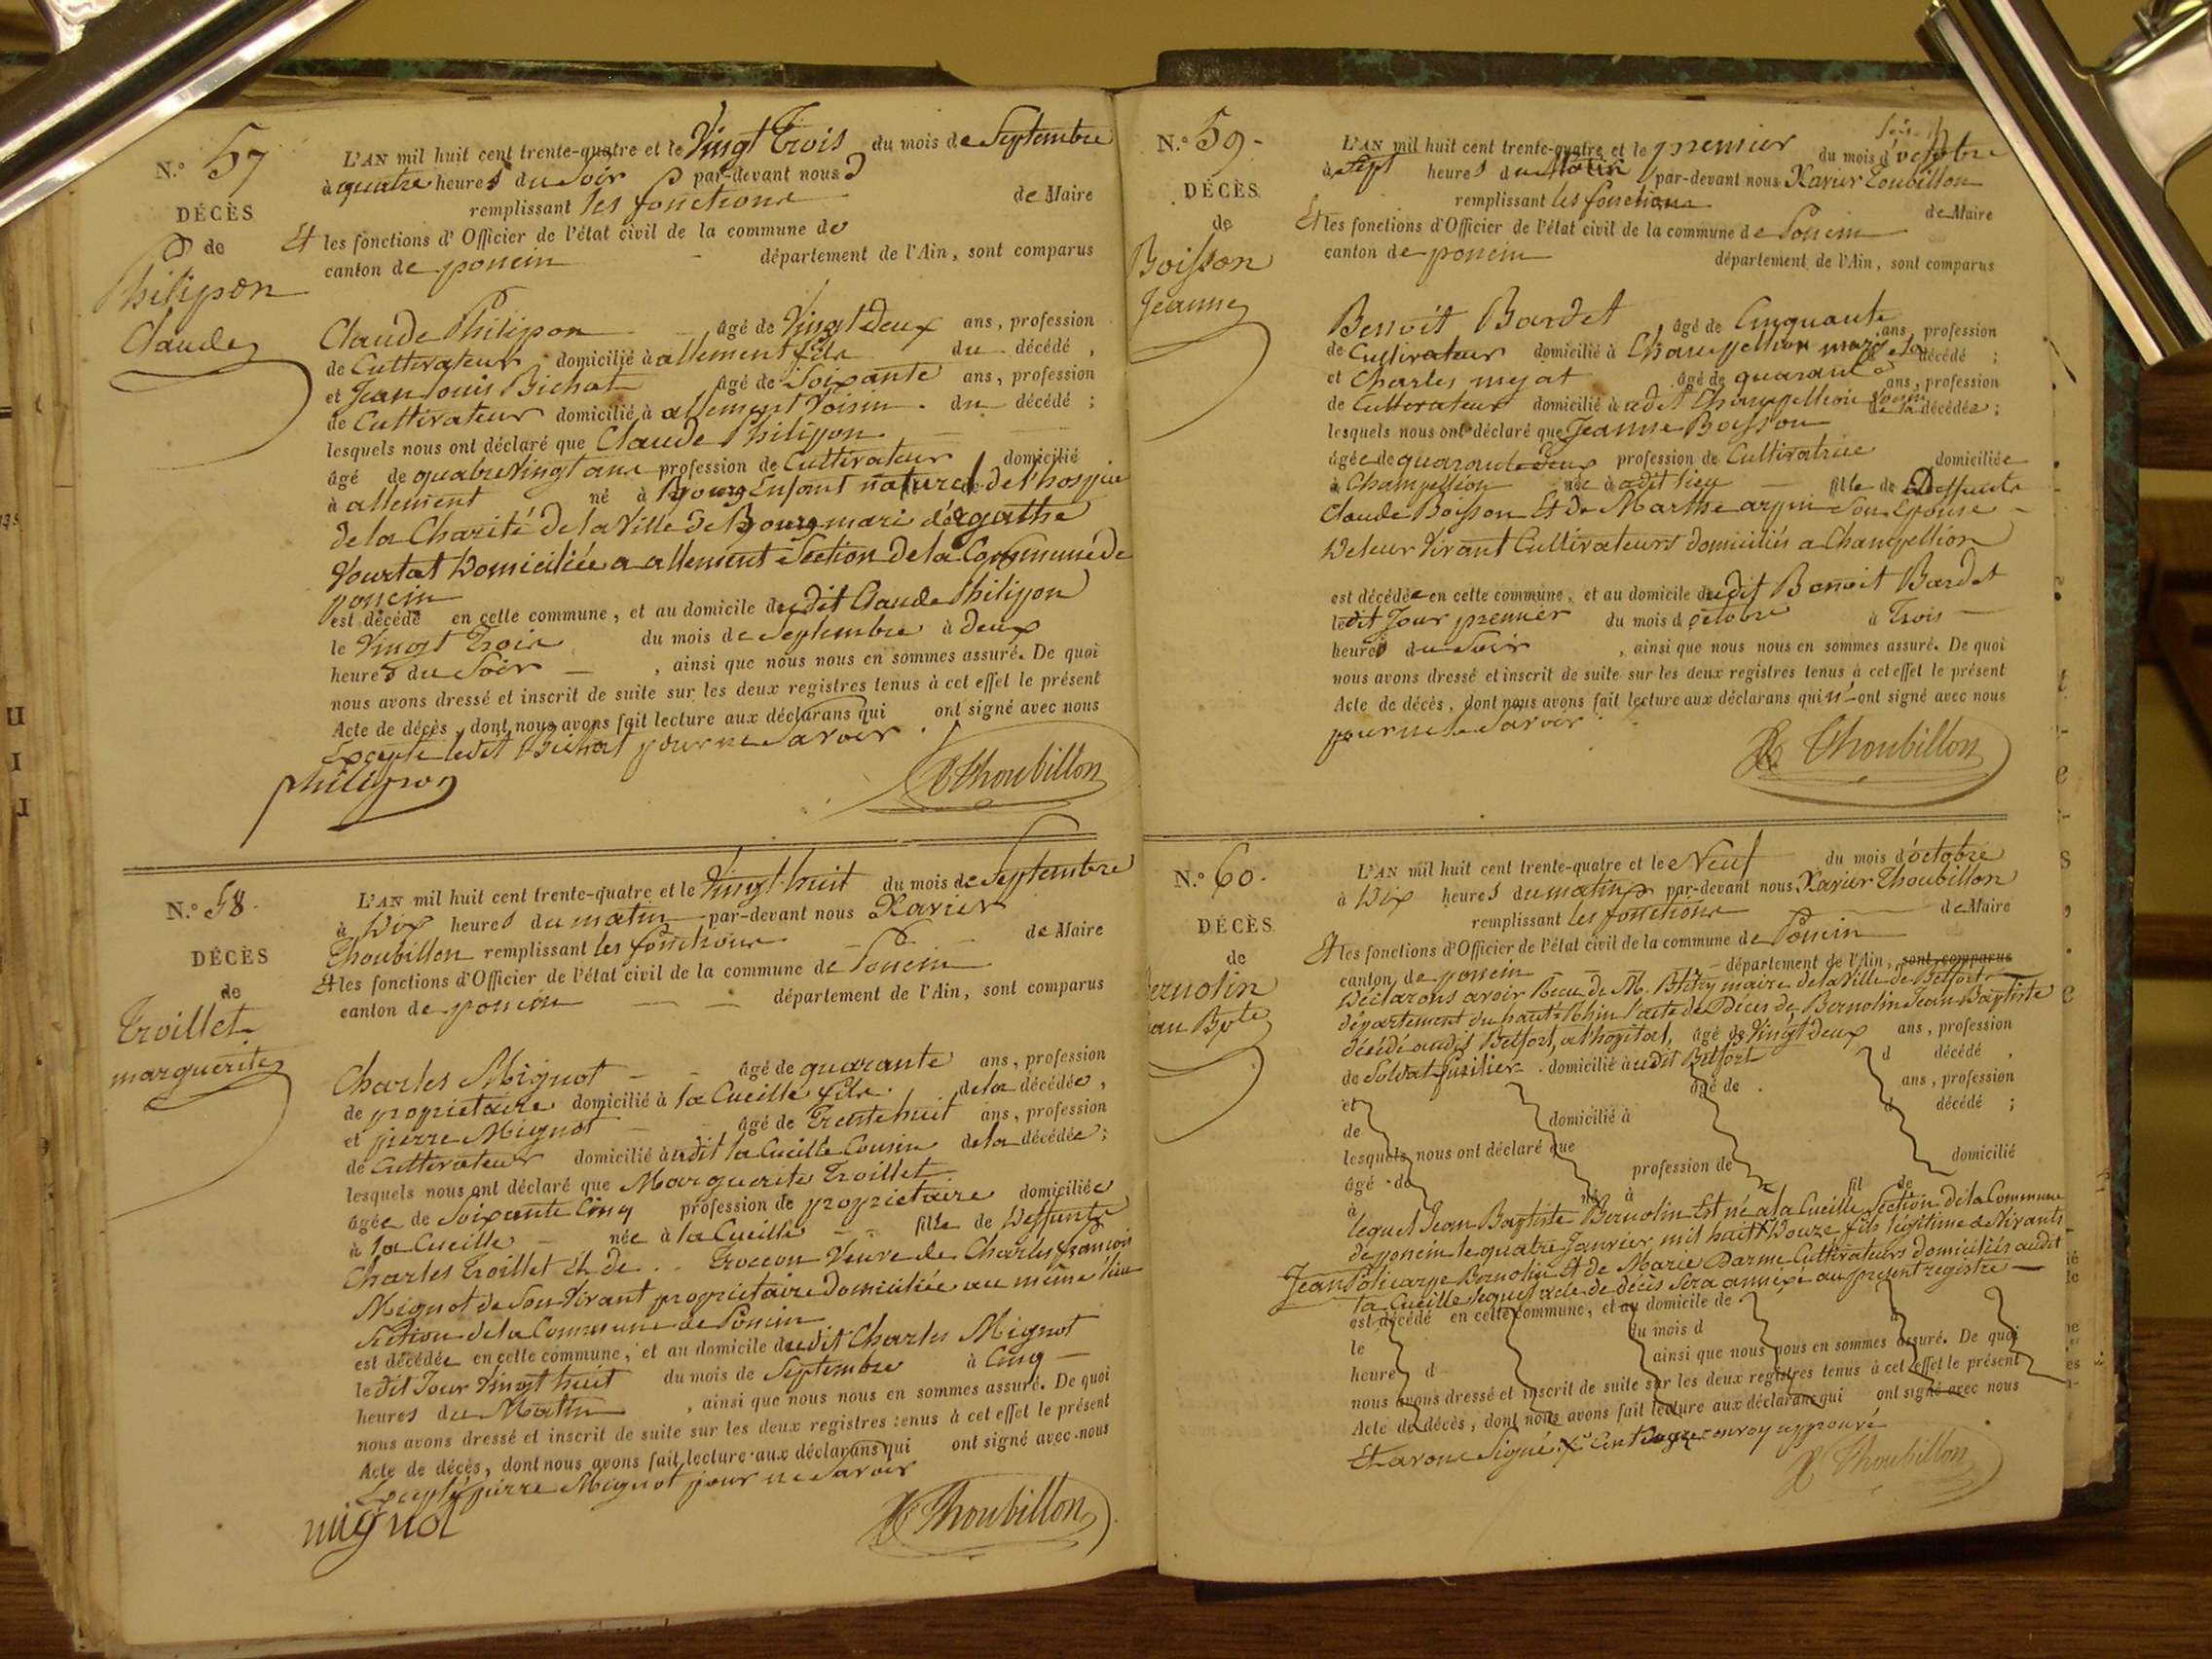 N.° 57
DÉCÈS
de
Philippon
Claude
L'AN mil huit cent trente-quatre et le Vingt trois du mois de Septembre
à quatre heures du Soir par-devant nous
remplissant les fonctions de Maire
Et les fonctions d'Officier de l'état civil de la commune de
canton de poncin département de l'Ain, sont comparus
Claude Philippon âgé de Vingt deux ans, profession
de Cultivateur domicilié à allement fils du décédé,
et Jean Louis Bichat âgé de Soixante ans, profession
de Cultivateur domicilié à allement Voisin du décédé;
lesquels nous ont déclaré que Claude Philippon
âgé de quatre Vingt ans profession de Cultivateur domicilié
à allement né à Bourg Enfant naturel de l'hospice
de la Charité de la Ville de Bourg mari d'agathe
Domiciliée a allement Section de la Commune de
poncin
est décédé en cette commune, et au domicile dudit Claude Philippon
le Vingt Trois du mois de Septembre à deux
heures du Soir, ainsi que nous nous en sommes assuré. De quoi
nous avons dressé et inscrit de suite sur les deux registres tenus à cet effet le présent
Acte de décès, dont nous avons fait lecture aux déclarans qui ont signé avec nous
Excepté ledit Bichat pour ne Savoir.
philippon X Thoubillon
N.° 58
DÉCÈS
de
Troillet
marguerite
L'AN mil huit cent trente-quatre et le Vingt huit du mois de Septembre
à Dix heures du matin par-devant nous Xavier
Thoubillon remplissant les fonctions de Maire
Et les fonctions d'Officier de l'état civil de la commune de Poncin
canton de poncin département de l'Ain, sont comparus
Charles Mignot âgé de quarante ans, profession
de propriétaire domicilié à la Cueille fils de la décédée,
et pierre Mignot âgé de Trente huit ans, profession
de Cultivateur domicilié à udit la Cueille Cousin de la décédée;
lesquels nous ont déclaré que Marguerite Troillet
âgée de Soixante Cinq profession de propriétaire domiciliée
à la Cueille née à la Cueille fille de Deffunts
Charles Troillet Et de .. Troccon Veuve de Charles françois
Mignot de Son Vivant propriétaire Domiciliée au même lieu
Section de la Commune de Poncin
est décédée en cette commune, et au domicile dudit Charles Mignot
le dit Jour Vingt huit du mois de Septembre à Cinq
heures du Matin, ainsi que nous nous en sommes assuré. De quoi
nous avons dressé et inscrit de suite sur les deux registres tenus à cet effet le présent
Acte de décès, dont nous avons fait lecture aux déclarans qui ont signé avec nous
Excepté pierre Mignot pour ne Savoir
mignot X Thoubillon
N.° 59.
DÉCÈS
de
Boisson
Jeanne
L'AN mil huit cent trente-quatre et le premier du mois d'octobre
à Sept heures du par-devant nous Xavier Toubillon
remplissant les fonctions de Maire
Et les fonctions d'Officier de l'état civil de la commune de Poncin
canton de poncin département de l'Ain, sont comparus
Benoit Bardet âgé de Cinquante ans profession
de Cultivateur domicilié à Champellion mary de la décédé;
et Charles mejat âgé de quarante ans, profession
de Cultivateur domicilié à udit Champellion Voisin de la décédée;
lesquels nous ont déclaré que Jeanne Boisson
âgée de quarante deux profession de Cultivatrice domiciliée
à Champellion née à udit lieu fille de Deffunts
Claude Boisson Et De Marthe arpin Son Epouse
De leur Vivant Cultivateurs domiciliés a Champellion
est décédée en cette commune, et au domicile dudit Benoit Bardet
ledit Jour premier du mois d'octobre à Trois
heures du Soir, ainsi que nous nous en sommes assuré. De quoi
nous avons dressé et inscrit de suite sur les deux registres tenus à cet effet le présent
Acte de décès, dont nous avons fait lecture aux déclarans qui n'ont signé avec nous
pour ne le Savoir.
X Thoubillon
N.° 60.
DÉCÈS
de
L'AN mil huit cent trente-quatre et le Neuf du mois d'octobre
à Dix heures du matin par-devant nous Xavier Thoubillon
remplissant les fonctions de Maire
Et les fonctions d'Officier de l'état civil de la commune de Poncin
canton de poncin département de l'Ain, sont comparus
Déclarons avoir Recu de M. maire de la Ville de Belfort
département du haut Rhin l'acte de Déces de Bernolin Jean Baptiste
décédé audit Belfort, a l'hopital, âgé de Vingt deux ans, profession
de Soldat fusilier domicilié à udit Belfort d décédé,
et âgé de ans, profession
de domicilié à d décédé;
lesquels nous ont déclaré que
âgé de profession de domicilié
à né à fil de
lequel Jean Baptiste Bernolin Est né a la Cueille Section de la Commune
de poncin le quatre Janvier mil huit Douze fils légitime de Vivants
Jean Policarpe Bernolin Et de Marie Darme Cultivateurs domiciliés audit
la Cueille lequel acte de décès Sera annexé au présent registre
est décédé en cette commune, et au domicile de
le du mois d à
heure d ainsi que nous nous en sommes assuré. De quoi
nous avons dressé et inscrit de suite sur les deux registres tenus à cet effet le présent
Acte de décès, dont nous avons fait lecture aux déclarans qui ont signé avec nous
Et avons Signé approuvé
X Thoubillon